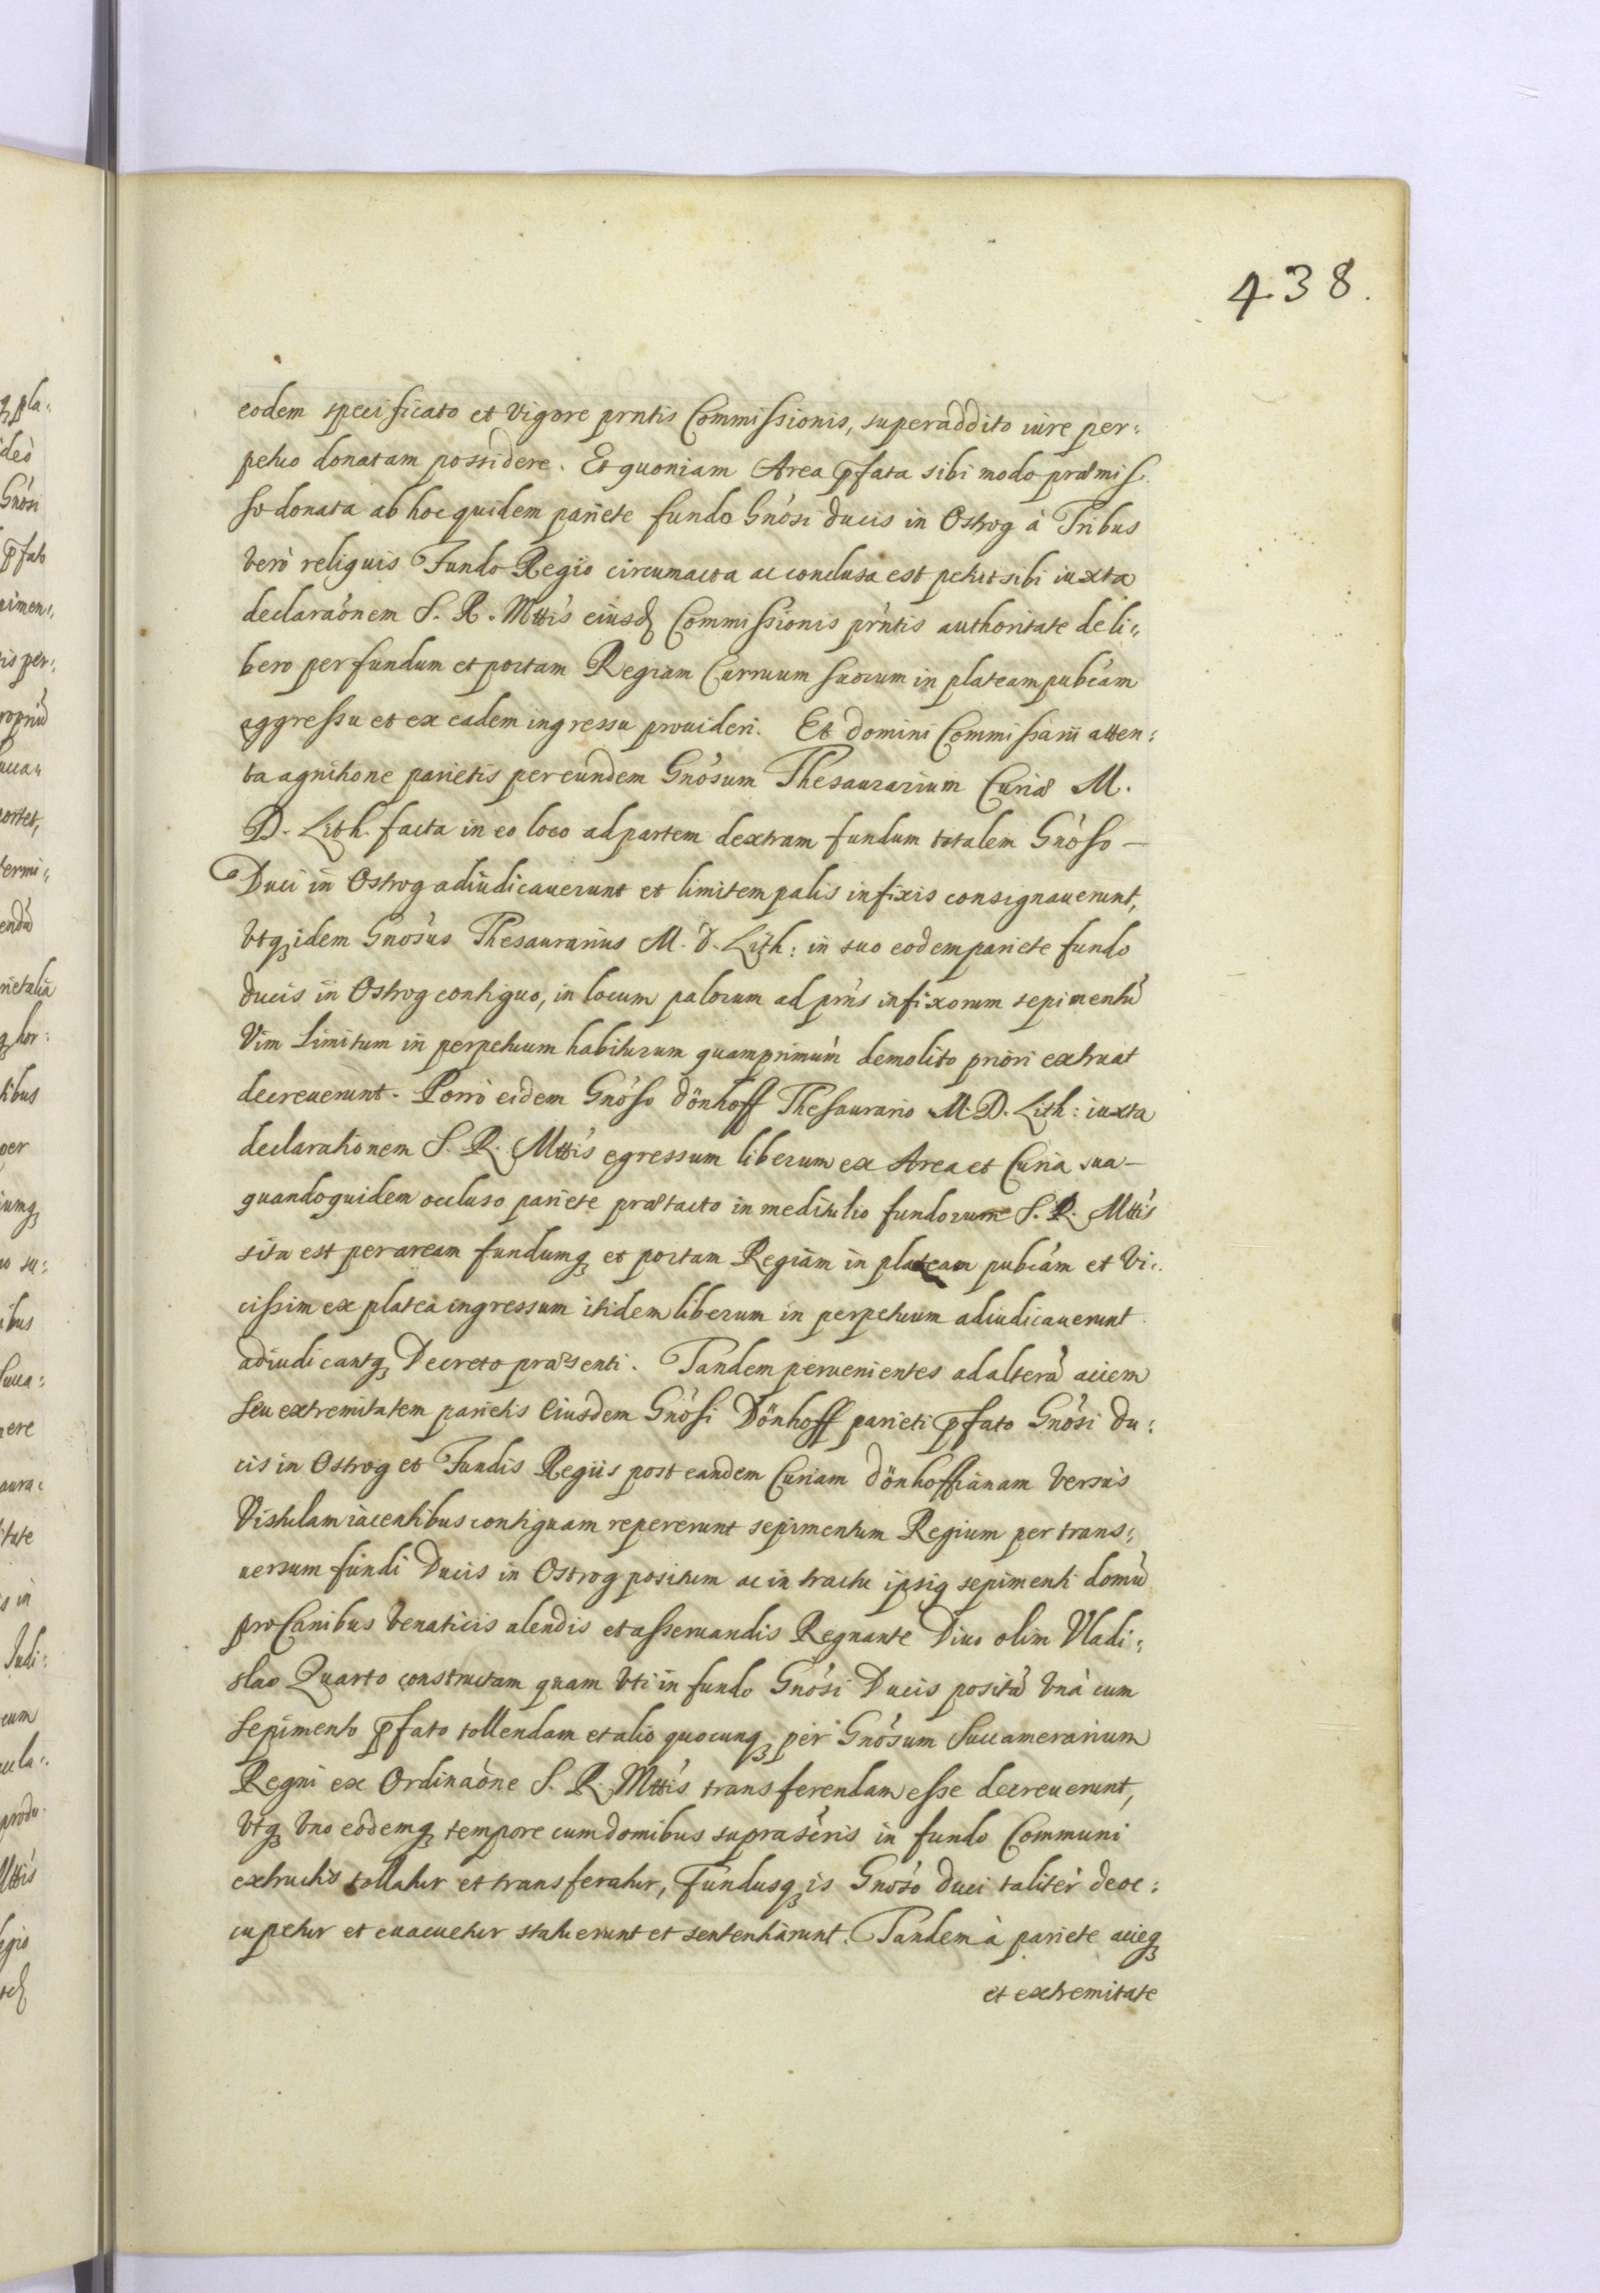 438.
eodem specificato et vigore prntis Commissionis, superaddito iure per:
petuo donatam possidere. Et quoniam Area pfata sibi modo præmis:
so donata ab hoc quidem pariete fundo Gnósi Ducis in Ostrog à Tribus
verò reliquis Fundo Regio circumacta ac conclusa est petiit sibi iuxta
declaraónem S. R. Mttis eiusd Commissionis prńtis authoritate de li:
bero per fundum et portam Regiam Curruum suorum in plateam pubcám
aggressu et ex eadem ingressu prouideri. Et Domini Commissarii atten:
ta agnitione parietis per eundem Gnósum Thesaurarium Curiæ M.
D. Lith. facta in eo loco ad partem dextram fundum totalem Gnóso —
Duci in Ostrog adiudicauerunt et limitem palis infixis consignauerunt,
vtq idem Gnosús Thesaurarius M. D. Lith: in suo eodem pariete fundo
ducis in Ostrog contiguo, in locum palorum ad prńs infixorum sepimentũ
Vim Limitum in perpetuum habiturum quamprimum demolito priori extruat
decreuerunt. Porrò eidem Gnóso Dönhoff Thesaurario M. D. Lith: iuxta
declarationem S. R. Mttis egressum liberum ex Area et Curia sua —
quandoquidem occluso pariete prætacto in meditulio fundorum S. R. Mttis
sita est per aream fundumq et portam Regiam in plateam pubcám et Vi:
cissim ex platea ingressum itidem liberum in perpetuum adiudicauerunt
adiudicantq Decreto præsenti. Tandem peruenientes ad alterã aciem
seu extremitatem parietis Eiusdem Gnósi Dönhoff parieti pfato Gnósi Du:
cis in Ostrog et Fundis Regiis post eandem Curiam Dönhoffianam versùs
Vistulam iacentibus contiguam repererunt sepimentum Regium per trans:
uersum fundi Ducis in Ostrog positum ac in tractu ipsiq sepimenti domũ
pro Canibus Venaticis alendis et asseruandis Regnante Diuo olim Vladi:
slao Quarto constructam quam vti in fundo Gnósi Ducis positã vnà cum
sepimento pfato tollendam et alio quocunq per Gnósum Succamerarium
Regni ex Ordinaóne S. R. Mttis transferendam esse decreuerunt,
vtq vno eodemq tempore cum domibus suprascris in fundo Communi
extructis tollatur et transferatur, Fundusq is Gnóso Duci talitèr deoc:
cupetur et euacuetur statuerunt et sententiàrunt. Tandem à pariete acieq
et extremitate